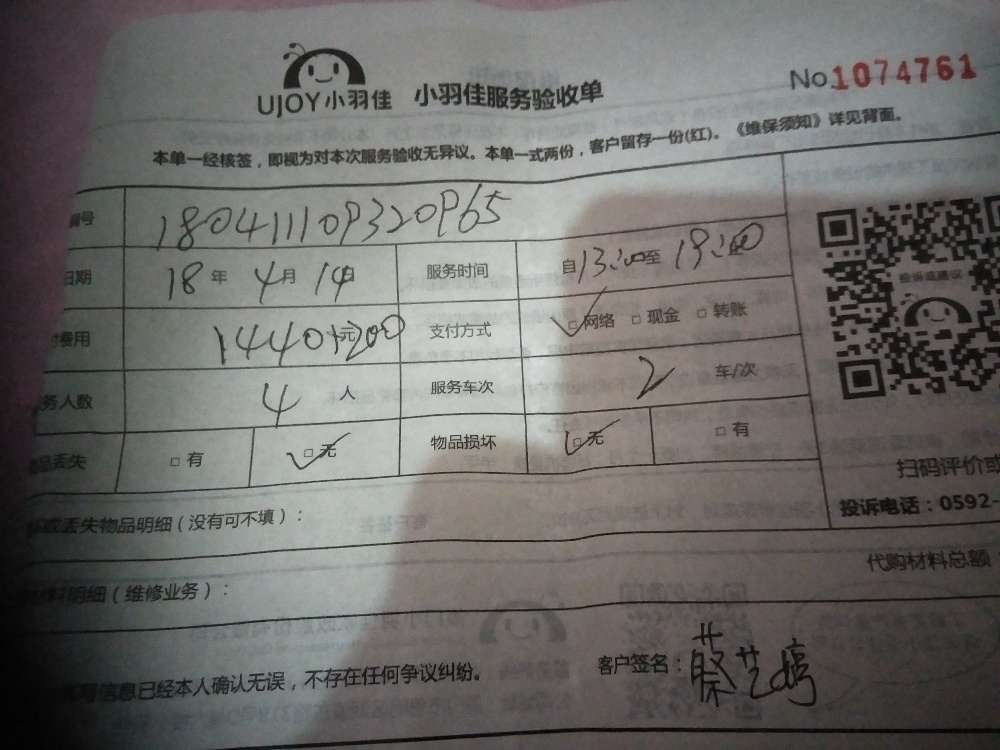 UJOY小羽佳 小羽佳服务验收单 No.1074761
本单一经核签，即视为对本次服务验收无异议。本单一式两份，客户留存一份(红)。《维保须知》详见背面。
编号 180411109320965
日期 18年4月14日 服务时间 自13:00至19:00
费用 1440元+200 支付方式 ☑网络 □现金 □转账
务人数 4人 服务车次 2 车/次
品丢失 □有 ☑无 物品损坏 ☑无 □有
投诉或建议
扫码评价或
投诉电话：0592-
或丢失物品明细（没有可不填）：
料明细（维修业务）： 代购材料总额
信息已经本人确认无误，不存在任何争议纠纷。 客户签名：蔡艺婷